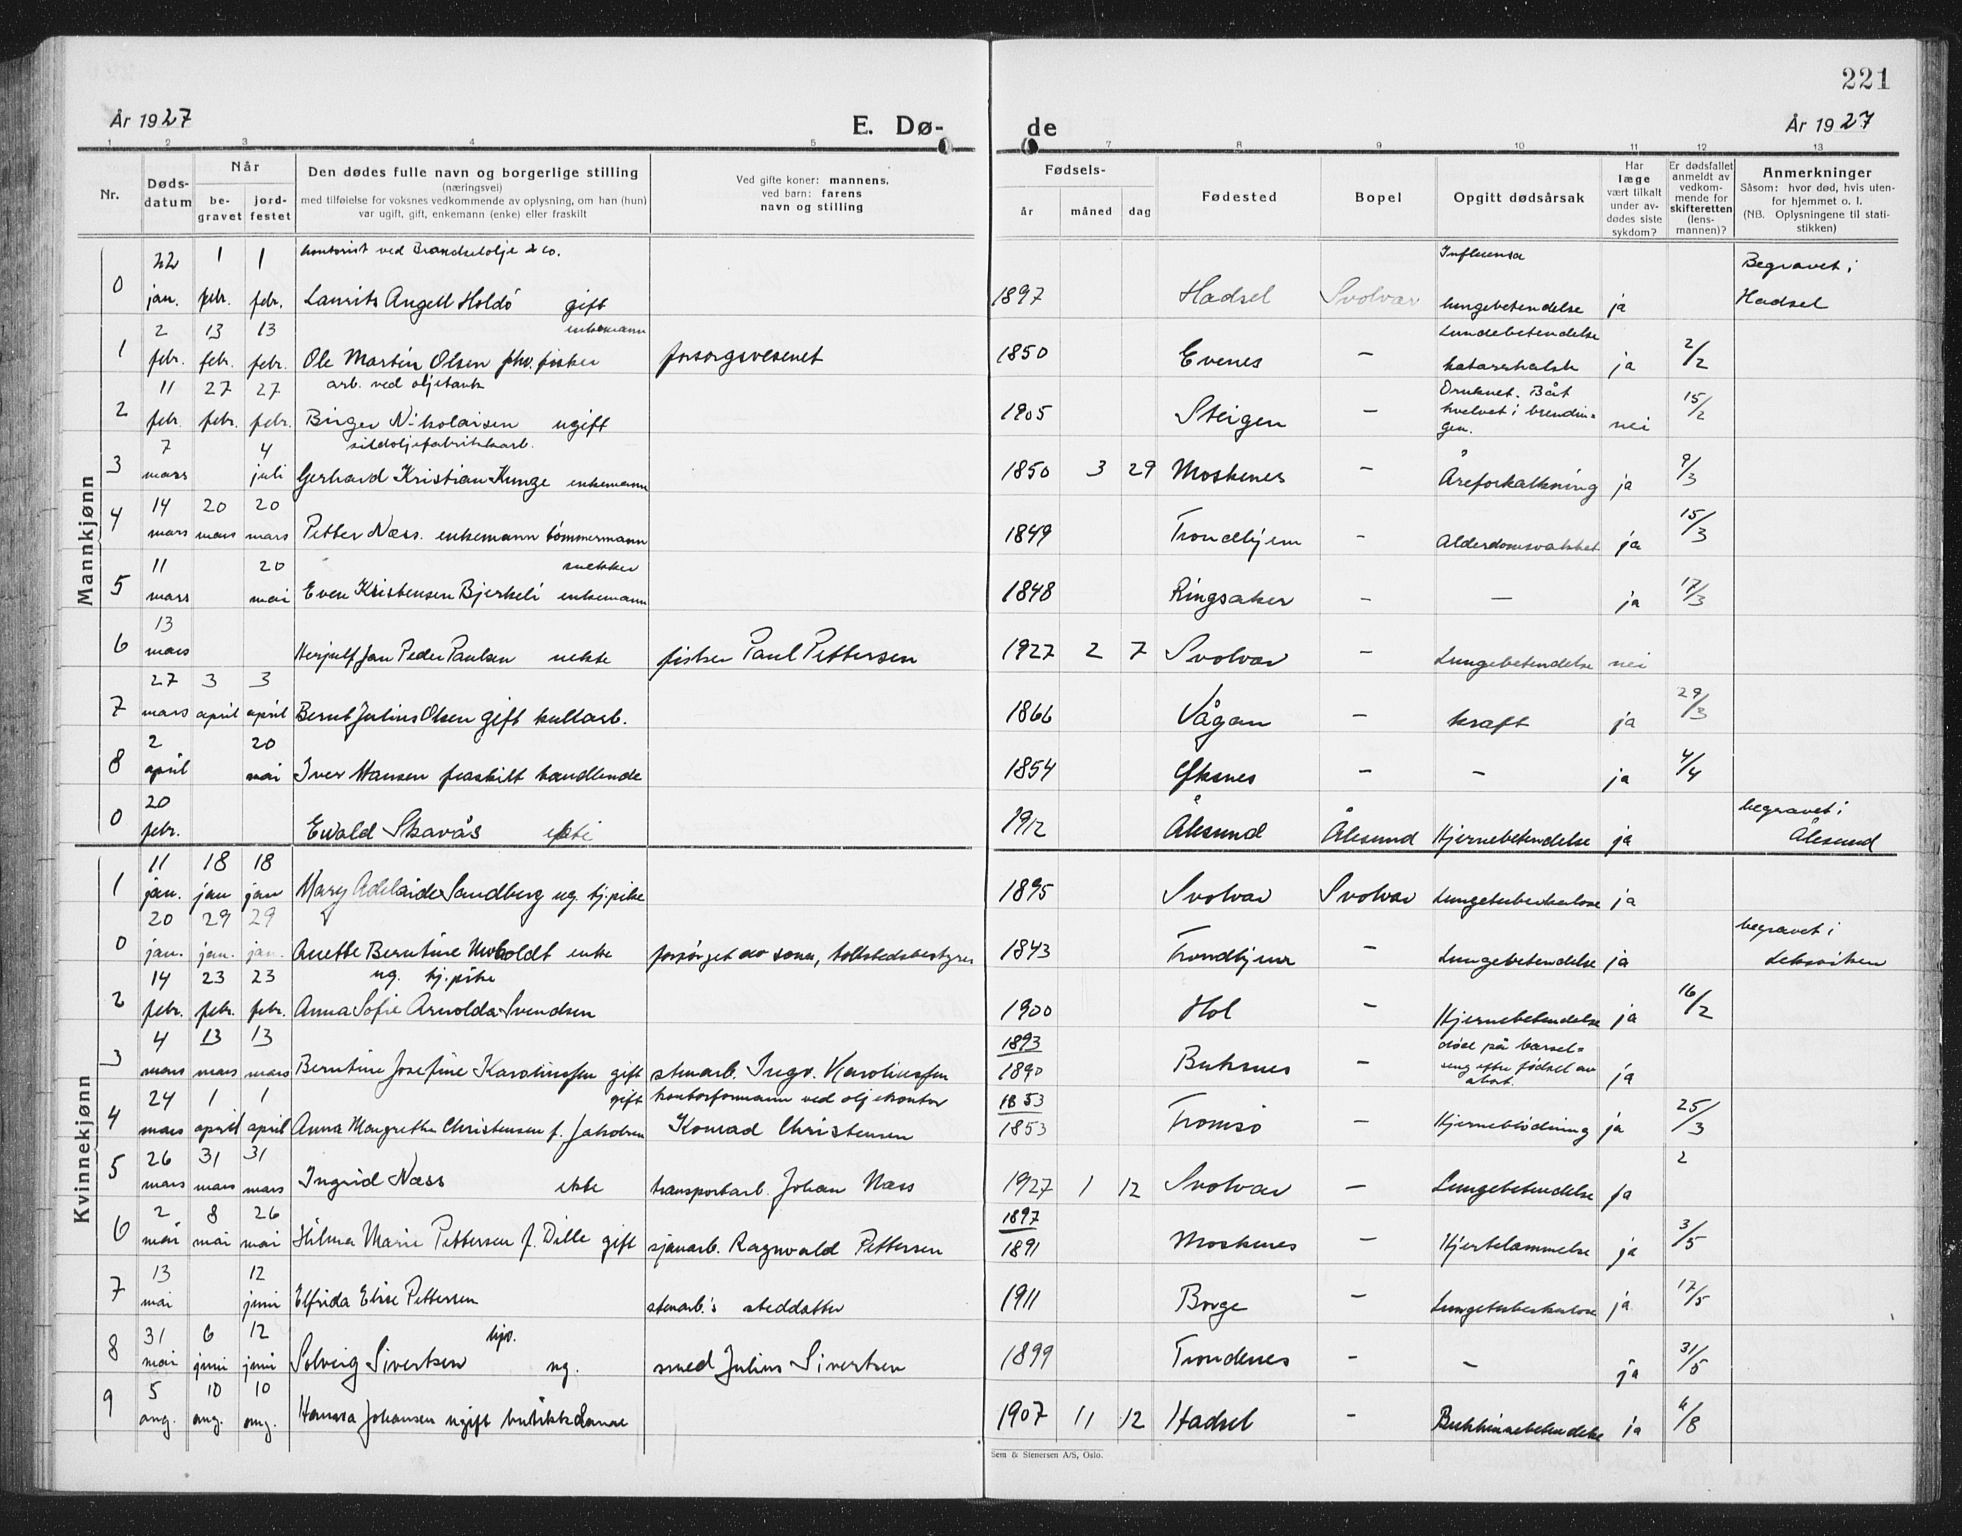 221
År 1927
E. Dø-
de
År 1927
1 2 3 4 5 7 8 9 10 11 12 13
Nr.
Døds-
datum
Når
be-
gravet
jord-
festet
Den dødes fulle navn og borgerlige stilling
(næringsvei)
med tilføielse for voksnes vedkommende av oplysning, om han (hun)
var ugift, gift, enkemann (enke) eller fraskilt
Ved gifte koner: mannens,
ved barn: farens
navn og stilling
Fødsels-
år måned dag
Fødested
Bopel
Opgitt dødsårsak
Har
læge
vært tilkalt
under av-
dødes siste
sykdom?
Er dødsfallet
anmeldt av
vedkom-
mende for
skifteretten
(lens-
mannen)?
Anmerkninger
Såsom: hvor død, hvis uten-
for hjemmet o. l.
(NB. Oplysningene til stati-
stikken)
Mannkjønn
kontorist ved Brændselolje & co. Influensa Begravet i
0 22 jan. 1 febr. 1 febr. Laurits Angell Holdö gift 1897 Hadsel Svolvær lungebetendelse ja Hadsel
enkemann Lundebetendelse
1 2 febr. 13 febr. 13 febr. Ole Martin Olsen fhv. fisker forsorgsvesenet 1850 Evenes – katarrhalsk ja 2/2
arb. ved oljetank Druknet. Båt
2 11 febr. 27 febr. 27 febr. Birger Nikolaisen ugift 1905 Steigen – hvelvet i brendin= nei 15/2
gen.
sildoljefabrikkarb.
3 7 mars 4 juli Gerhard Kristian Kunge enkemann 1850 3 29 Moskenes – Åreforkalkning ja 9/3
4 14 mars 20 mars 20 mars Petter Næss. enkemann tømmermann 1849 Trondhjem – Alderdomsvakhet ja 15/3
snekker
5 11 mars 20 mai Even Kristensen Bjerkeli enkemann 1848 Ringsaker – – ja 17/3
6 13 mars Herjulf Jan Peder Paulsen uekte fisker Paul Pettersen 1927 2 7 Svolvær – Lungebetendelse nei
7 27 mars 3 april 3 april Bernt Julius Olsen gift kullarb. 1866 Vågan – kraft ja 29/3
8 2 april 20 mai Iver Hansen fraskilt handlende 1854 Øksnes – – ja 4/4
begravet i
0 20 febr. Ewald Skavås 1912 Ålesund Ålesund Hjernebetendelse ja Ålesund
Kvinnekjønn
1 11 jan. 18 jan 18 jan Mary Adelaide Sandberg ug. tj.pike 1895 Svolvær Svolvær Lungetuberkulose ja
begravet i
0 20 jan. 29 jan. 29 jan. Anette Berntine enke forsørget av sønn, tollstedsbestyrer 1843 Trondhjem – Lungebetendelse ja Leksviken
ug. tj.pike
2 14 febr. 23 febr. 23 febr. Anna Sofie Arnolda Svendsen 1900 Hol – Hjernebetendelse ja 16/2
1893 døde på barsel=
3 4 mars 13 mars 13 mars Berntine Josefine Karoliussen gift stenarb. Ingv. Karoliussen 1890 Buksnes – seng efter fødsel av ja
abort.
gift kontorformann ved oljekontor 1853
4 24 mars 1 april 1 april Anna Margrethe Christensen f. Jakobsen Konrad Christensen 1853 Tromsø – Hjerneblødning ja 25/3
5 26 mars 31 mars 31 mars Ingrid Næss ekte transportarb. Johan Næss 1927 1 12 Svolvær – Lungebetendelse ja 2
1897
6 2 mai 8 mai 26 mai Hilma Marie Pettersen f. Dille gift sjauarb. Ragnvald Pettersen 1891 Moskenes – Hjertelammelse ja 3/5
7 13 mai 12 juni Elfrida Elise Pettersen stenarb.'s steddatter 1911 Borge – Lungetuberkulose ja 17/5
hjv.
8 31 mai 6 juni 12 juni Solveig Sivertsen ug. smed Julius Sivertsen 1899 Trondenes – – ja 31/5
9 5 aug. 10 aug. 10 aug. Johansen ugift butikkdame 1907 11 12 Hadsel – Bukhinnebetendelse ja 6/8
Sem & Stenersen A/S, Oslo.